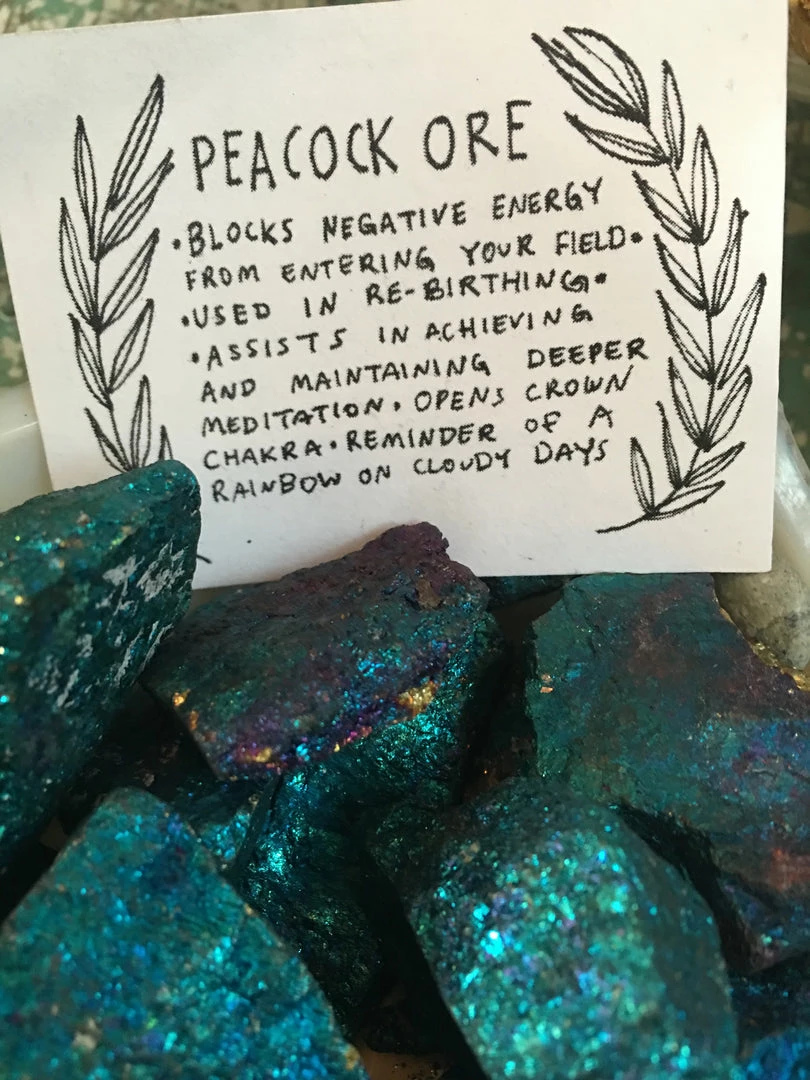 PEACOCK ORE
•BLOCKS NEGATIVE ENERGY
FROM ENTERING YOUR FIELD•
•USED IN RE-BIRTHING•
•ASSISTS IN ACHIEVING
AND MAINTAINING DEEPER
MEDITATION• OPENS CROWN
CHAKRA•REMINDER OF A
RAINBOW ON CLOUDY DAYS